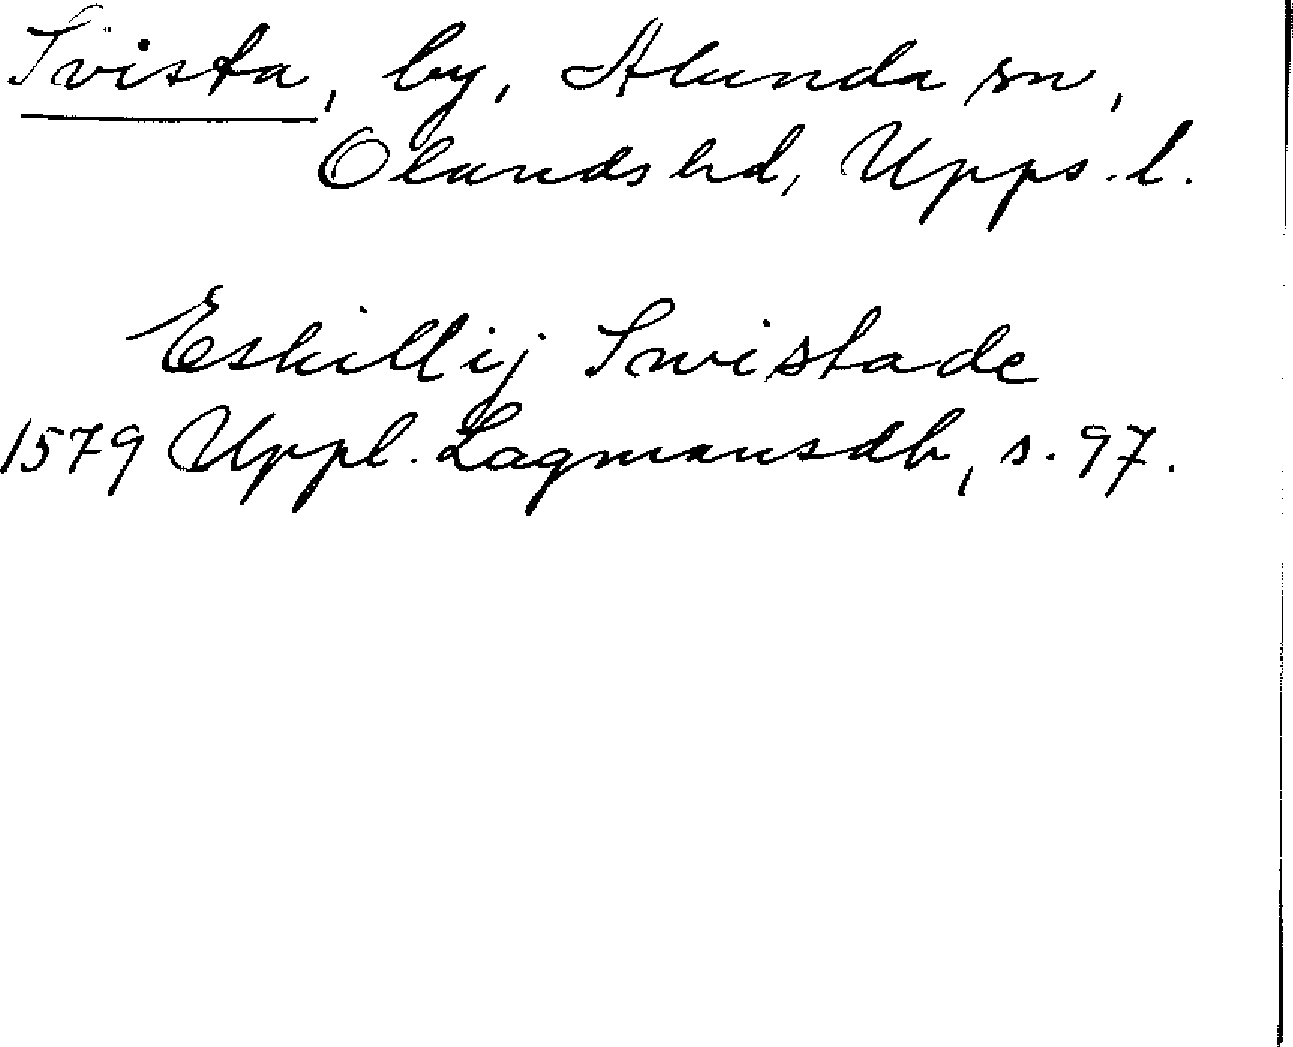 Svista, by, Alunda sn,
Olands hd, Upps. l.
Eskill ij Swistade
1579 Uppl. Lagmansdb, s. 97.